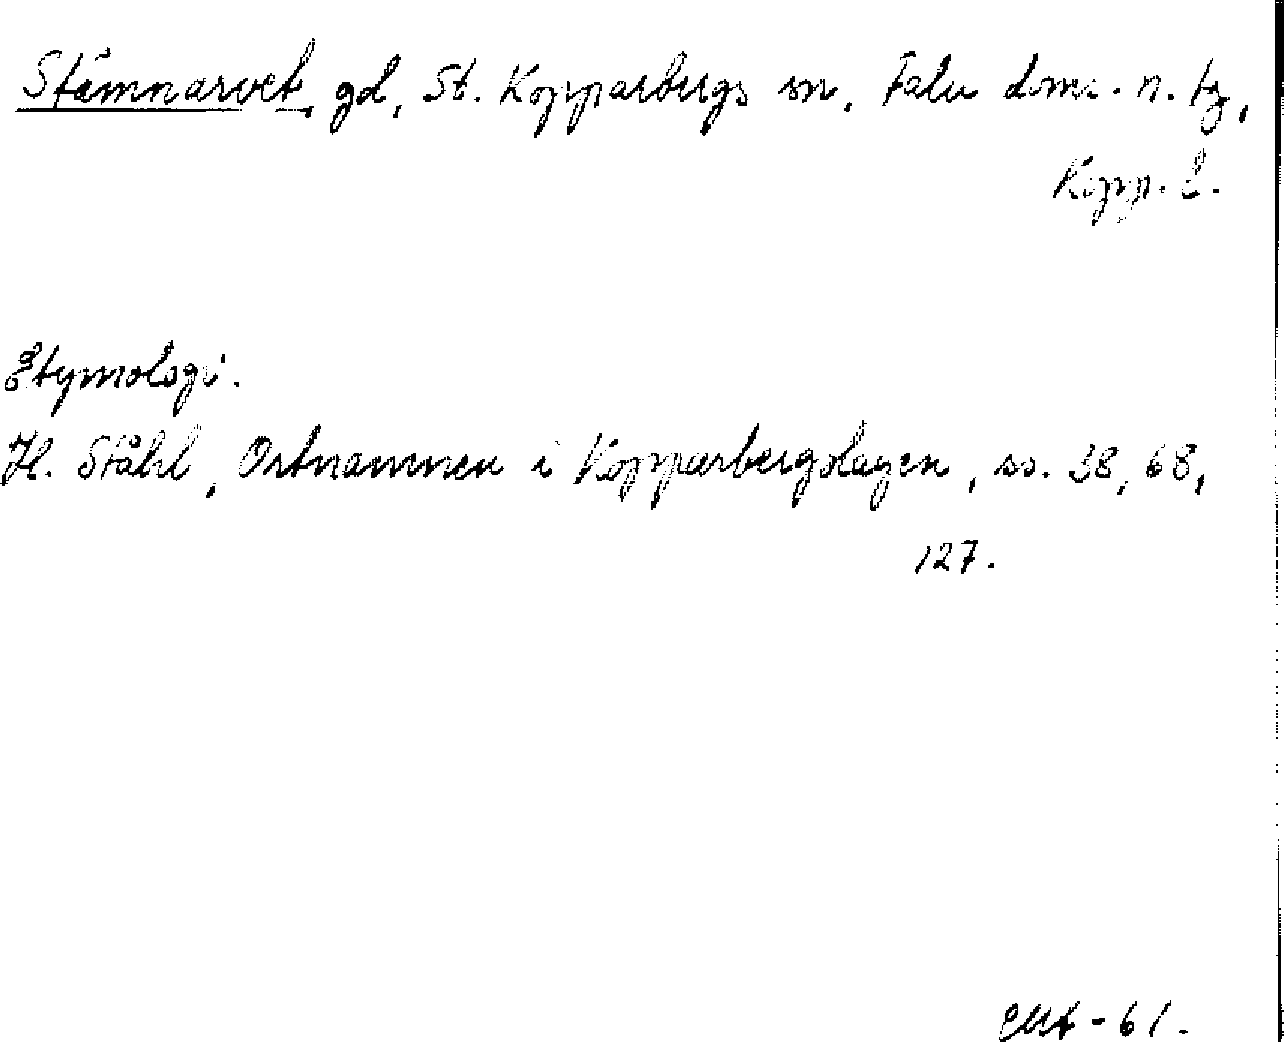 Stämnarvet, gd, St. Kopparbergs sn, Falu doms. n. tg,
Kopp. l.
Etymologi.
H. Ståhl, Ortnamnen i Kopparbergslagen, ss. 38, 68,
127.
-61.